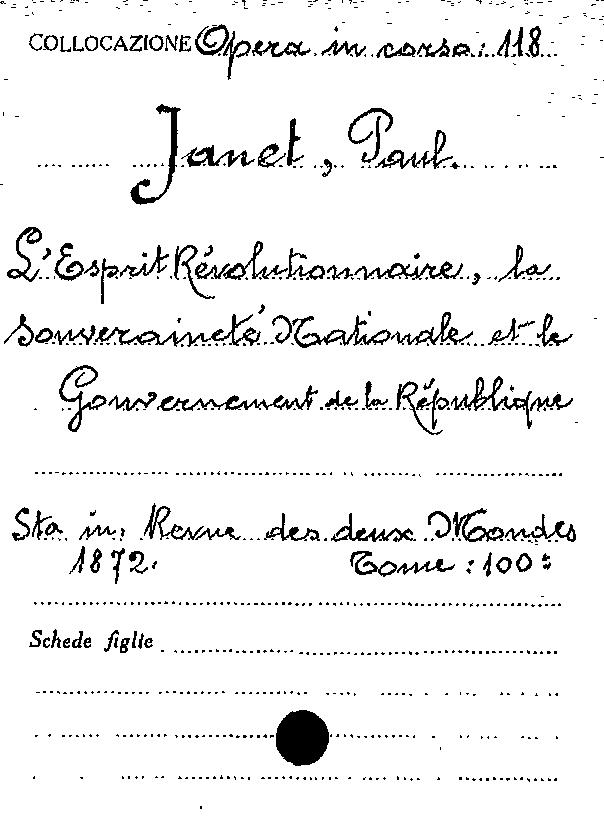 COLLOCAZIONE Opera in corso: 118
Janet, Paul.
L'Esprit Révolutionnaire, la
Souveraineté Nationale et le
Gouvernement de la République
Sta in: Revue des deux Mondes
1872. Tome: 100:
Schede figlie